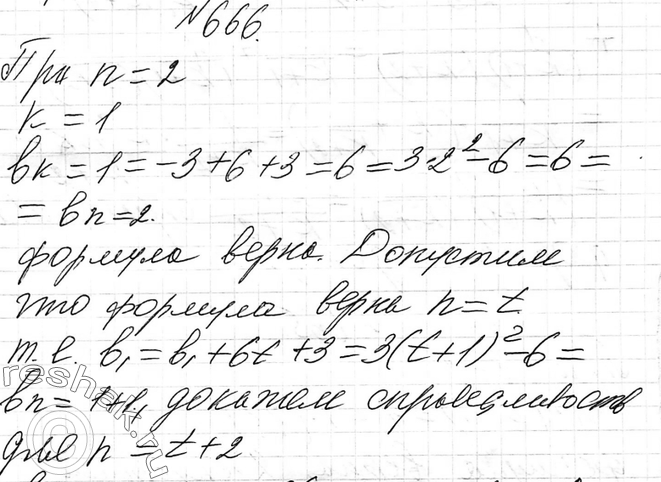 №666.
При n=2
к=1
вк=1=-3+6+3=6=3·2²-6=6=
=вn=2.
формула верна. Допустим
что формула верна n=t
т.е. в₁=в₁+6t+3=3(t+1)²-6=
вn=1+t, докажем справедливость
для n=t+2
reshak.ru